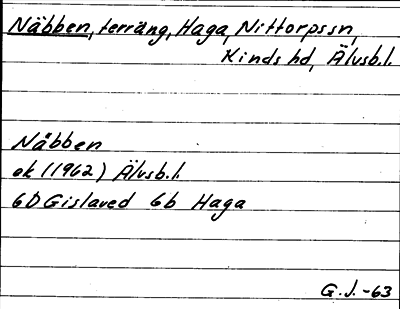 Näbben, terräng, Haga, Nittorpssn,
Kinds hd, Älvsb.l.
Nåbben
ek (1962) Älvsb.l.
6D Gislaved 6b Haga
G.J.-63